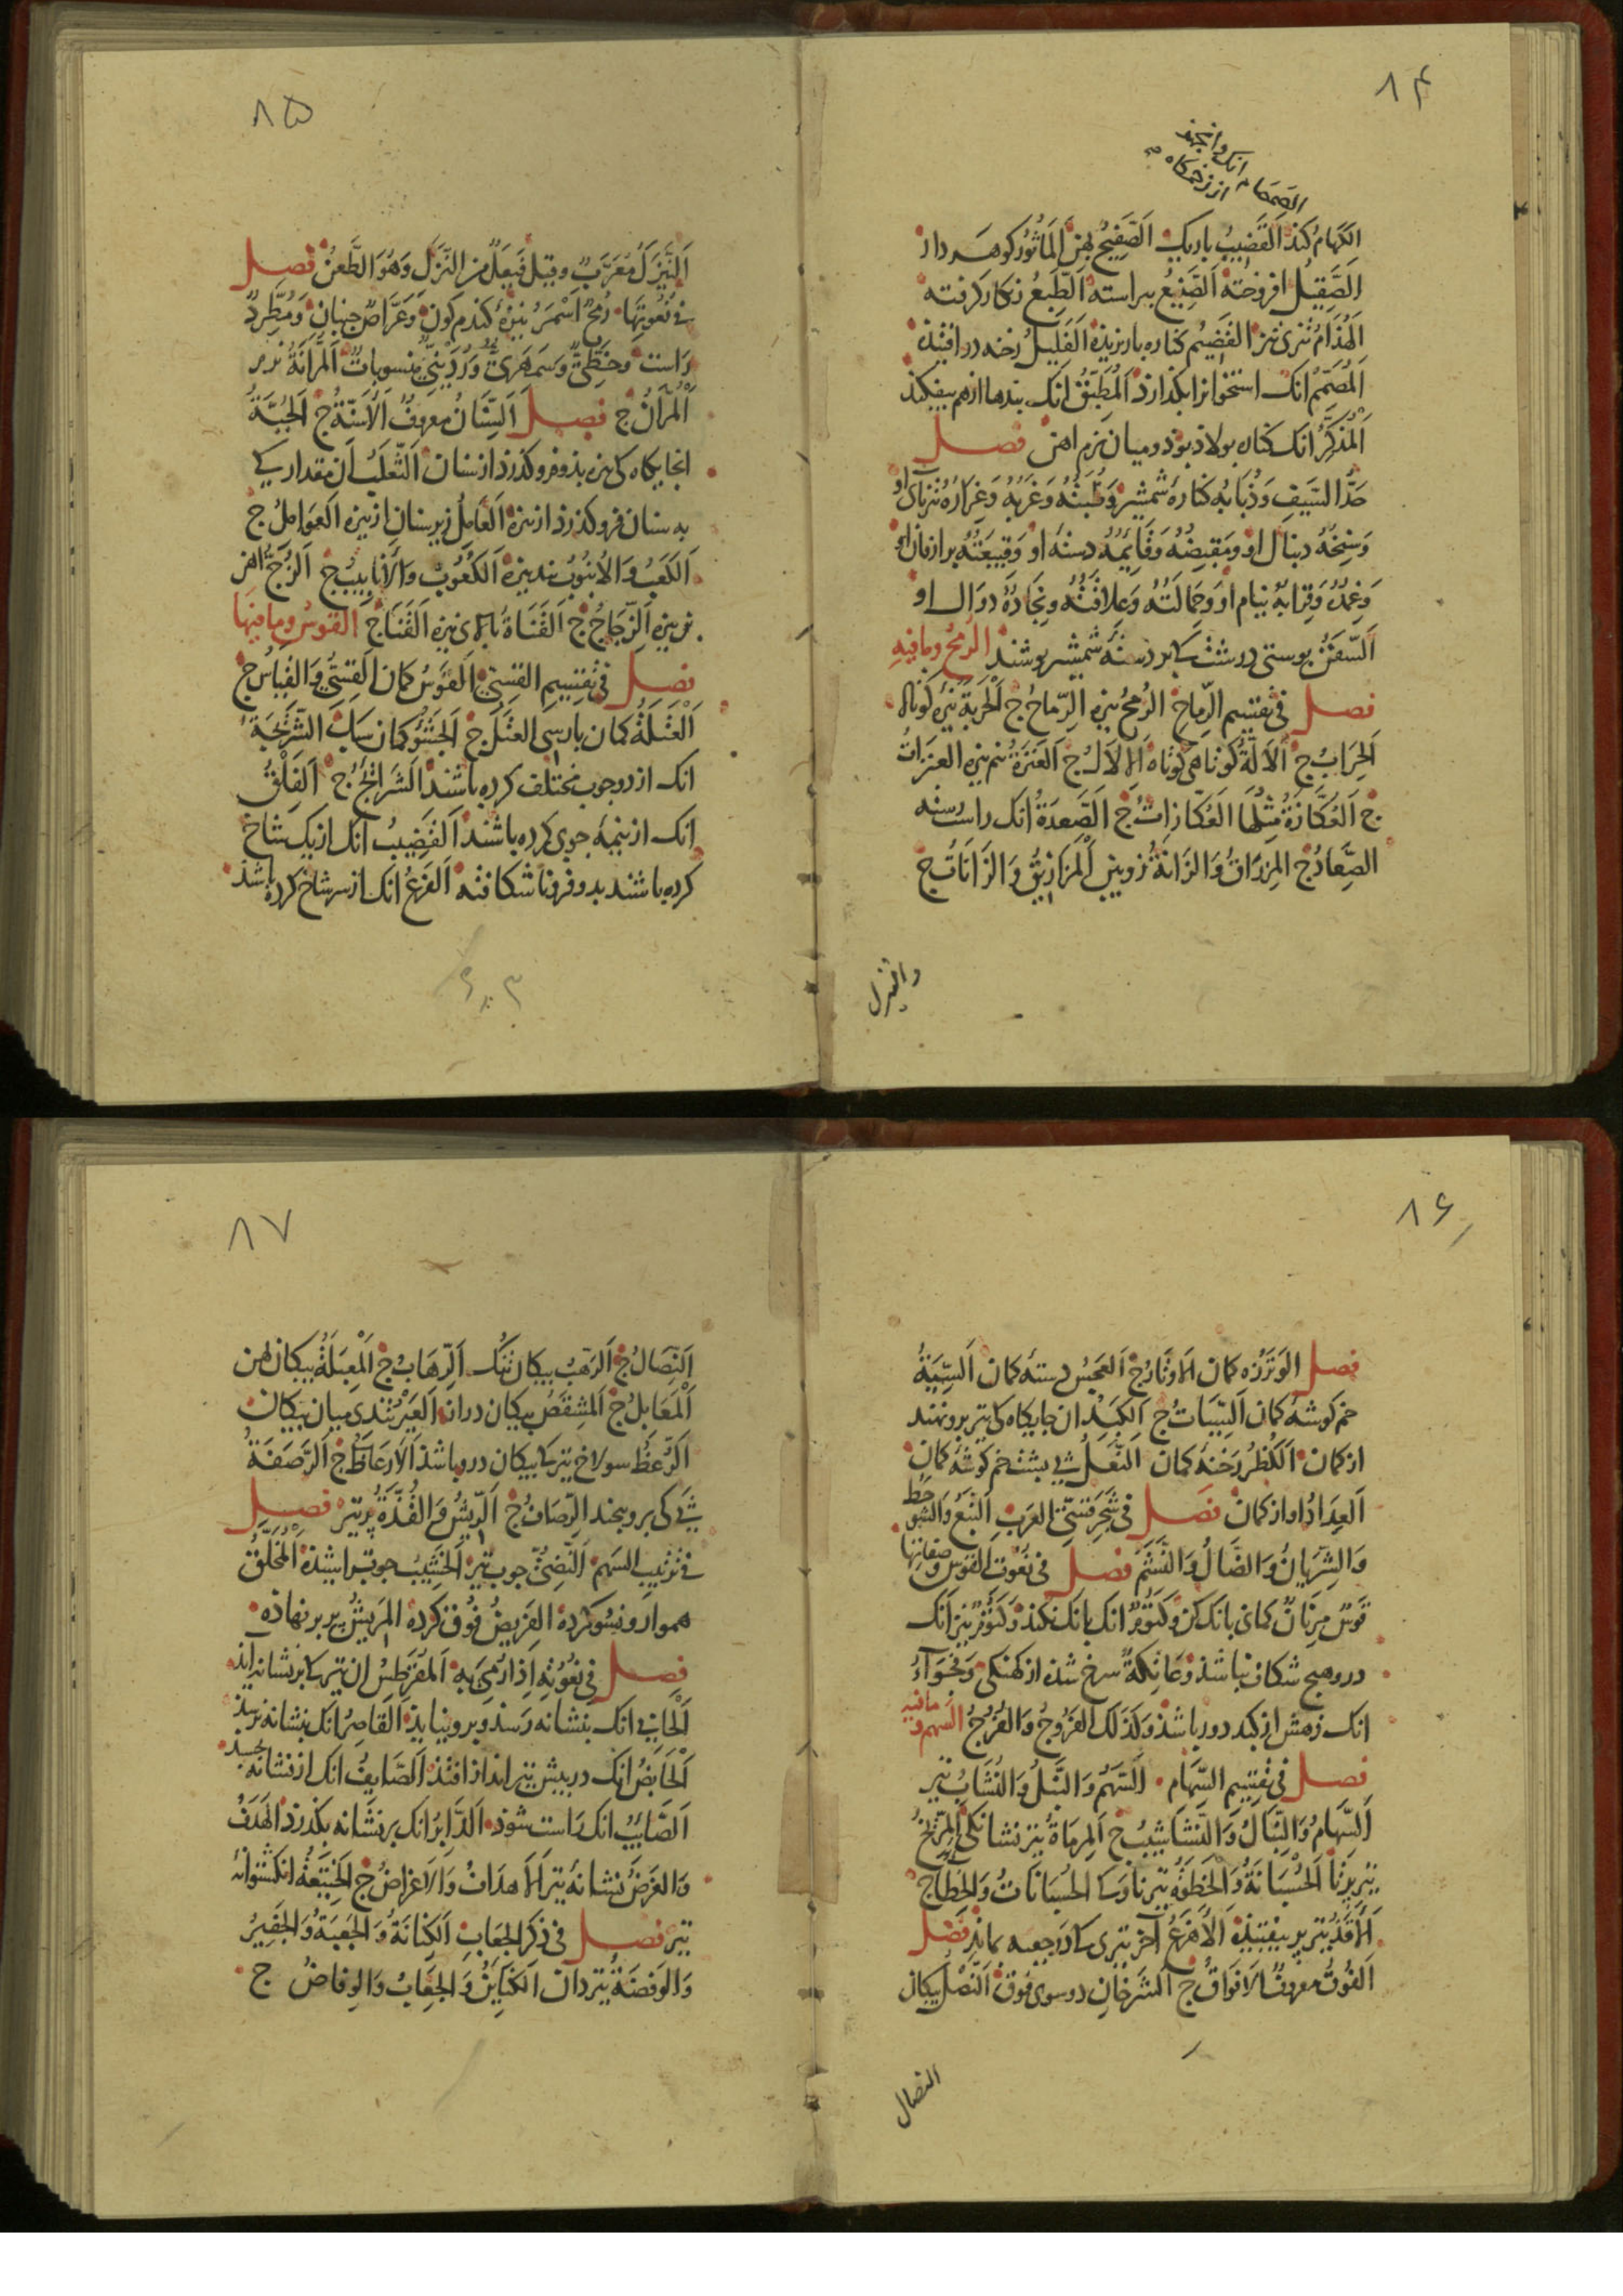 ۸۴
الصَمصَام انک وانجهد
از زخمکاه
الکَهَامُ کند القَضیبُ باریک الصَّفِیحُ پهن المَاثُورُ کوهر دار
الصَّقِیلُ افروخته الصَّنِیعُ پیراسته الطَّبِعُ زنکار کرفته
الهُذَامُ تیزی تیز القَضِیم کناره باریزیده الفَلِیلُ رخنه در افتیذه
المُصَمِّمُ انک استخوانرا بکذارذ المُطَبِّقُ انک بندها از هم بیفکند
المُذَکَّرُ انک کناره بولاذ بوذ و میان نرم اهن فصل
حَدُّ السَّیفِ وَذُبَابُه کنارهٔ شمشیر وَظُبَتُهُ وَغَربُهُ وَغِرَارُهُ تیزنای او
وَسِنخُهُ دنبال او وَمَقبِضُهُ وَقَائِمُهُ دستهٔ او وَقَبِیعَتُهُ برازبان او
وَغِمدُهُ وَقِرَابُهُ نیام او وَحِمَالَتُهُ وَعِلَاقَتُهُ ونِجَادُهُ دوال او
السَّفَنُ پوستی درشت کابر دستهٔ شمشیر پوشند الرمح وما فیه
فصل فی تقسیم الرِّماحِ الرُمحُ نیزه الرِّماحُ ج الحَربَةُ نیزه کوتاه
الحِرَابُ ج الاَلَّةُ کوتاهی کوتاه الاِلَالُ ج العَنَزَةُ نیم نیزه العنزاتُ
ج العُکَّازَةُ مِثلُهَا العُکَّازاتُ ج الصَّعدَةُ انک راست رسته
الصِّعَادُ ج المِزرَاقُ وَالزَانَةُ زوبین المَزَارِیقُ وَالزَانَاتُ ج
والنیزل
۸۵
النَّیزَلُ مُعَرَّبٌ وقیل فَیعَلٌ من النَّزَلِ وَهُوَ الطَّعنُ فصل
فی نُعُوتِهَا رُمحٌ اَسمَرُ نیزهٔ کندم کون وَعَرَّاصٌ جنبان وَمُطَّرِدٌ
رَاست وخَطِّیٌّ وَسَمهَرِیٌّ وَرُدَینِیٌّ منسوباتٌ المُرَّانَةُ
المُرَّانُ ج فصل السِّنَانُ معروفٌ الاَسِنَّةُ ج الجُبَّةُ
انجایکاه کی نیزه بذو فرو کذرذ از سنان الثَّعلَبُ ان مقدار کی
به سنان فرو کذرذ از نیزه العَامِلُ زیر سنان از نیزه العَوَامِلُ ج
الکَعبُ وَالاُنبُوبُ بند نیزه الکُعُوبُ وَالاَنَابِیبُ ج الزُّجُّ اهن
بن نیزه الزِّجَاجُ ج القَنَاةُ بالای نیزه القَنَا ج القوس وما فیها
فصل فی تقسِیم القِسِیِّ القَوسُ کمان القِسِیُّ وَالقِیَاسُ ج
العَتَلَةُ کمان پارسی العَتَلُ ج الجَشْءُ کمان سبک الشَّرِیجَةُ
انک از دو چوب مختلف کرده باشند الشَرَائِجُ ج الفِلقُ
انک از نیمهٔ چوی کرده باشند القَضِیبُ انک از یک شاخ
کرده باشند بدو فرو ناشکافته الفَرعُ انک از سر شاخ کرده باشند
۸۶
فصل الوَتَرُ زه کمان الاَوتَارُ ج العَجِسُ دستهٔ کمان السِّیَةُ
خم کوشهٔ کمان السِّیَاتُ ج الکَبِدُ ان جایکاه کی تیر برو نهند
از کمان الکُظرُ رخنهٔ کمان النَّعلُ پی بشت خم کوشهٔ کمان
العِدَادُ اواز کمان فصل فی شَجَرِ قِسِیِّ العَرَبِ النَبعُ وَالشَوحَطُ
وَالشِّریَانُ وَالضَّالُ وَالنَّشَمُ فصل فی نعُوت القوس وصفاتها
قَوسٌ مِرنَانٌ کمانی بانک کن وَکَتُومٌ انک بانک نکند وَکَتُومٌ نیز انک
درو هیچ شکاف نباشذ وَعَاتِکَةٌ سرخ شذه از کهنکی وَفَجوَاءُ
انک زهش از کبد دور باشذ وَکَذَلک الفَرُوجُ وَالفُرُجُ السهم وما فیه
فصل فی تقسِیم السِّهَام السَّهمُ وَالنَّبلُ وَالنُّشَابُ تیر
السِّهَامُ وَالنِّبَالُ وَالنَّشَاشِیبُ ج المِرمَاةُ تیر نشانکی المِرِّیخُ
تیر پرتا الحُسبَانَةُ وَالحَظوَةُ تیر ناوک الحُسبَانَاتُ وَالحِظَاءُ ج
الاَقَذُّ تیر پر بیفتیذه الاَهزَعُ آخر تیری کا در جعبه بماند فصل
الفُوقُ معروفٌ الاَفوَاقُ ج الشَرخَانِ دو سوی فوق النَّصلُ پیکان
النصال
۸۷
النِّصَالُ ج الرَّهبُ پیکان تنک الرِّهَابُ ج المِعبَلَةُ پیکان پهن
المَعَابِلُ ج المِشقَصُ پیکان دراز العَیرُ تندی میان پیکان
الرُّعظُ سولاخ تیر کا پیکان درو باشذ الاَرعَاظُ ج الرَّصَفَةُ
پی کی برو پیجند الرِّصَافُ ج الرِّیشُ وَالقُذَّةُ پر تیر فصل
فی ترتیب السهم النَّضِیُّ جوب تیر الخَشِیبُ جوبتراشیذه المُخَلَّقُ
هموار و نسو کرده الفَرِیضُ فُوق کرده المَرِیشُ پر بر نهاذه
فصل فی نعُوتِهِ اِذَا رُمِیَ بِهِ المُقَرطِسُ ان تیر کا بر نشانه اید
الحَابِی انک بنشانه رسذ و برو نیایذ القَاصِرُ انک بنشانه نرسذ
الحَابِضُ انک در بیش تیر انداز افتذ الصَّایِفُ انک از نشانه بجسبد
الصَّائِبُ انک رَاست شوذ الدَّابِرُ انک بر نشانه بکذرذ الهَدَفُ
وَالغَرَضُ نشانهٔ تیر الاَهدَافُ وَالاَغرَاضُ ج الخَیتَعَةُ انکشتوانهٔ
تیر فصل فی ذکر الجِعَابِ الکِنَانَةُ وَالجَعبَةُ وَالجَفِیرُ
وَالوَفضَةُ تیردان الکَنَایِنُ وَالجِعَابُ وَالوِفَاضُ ج